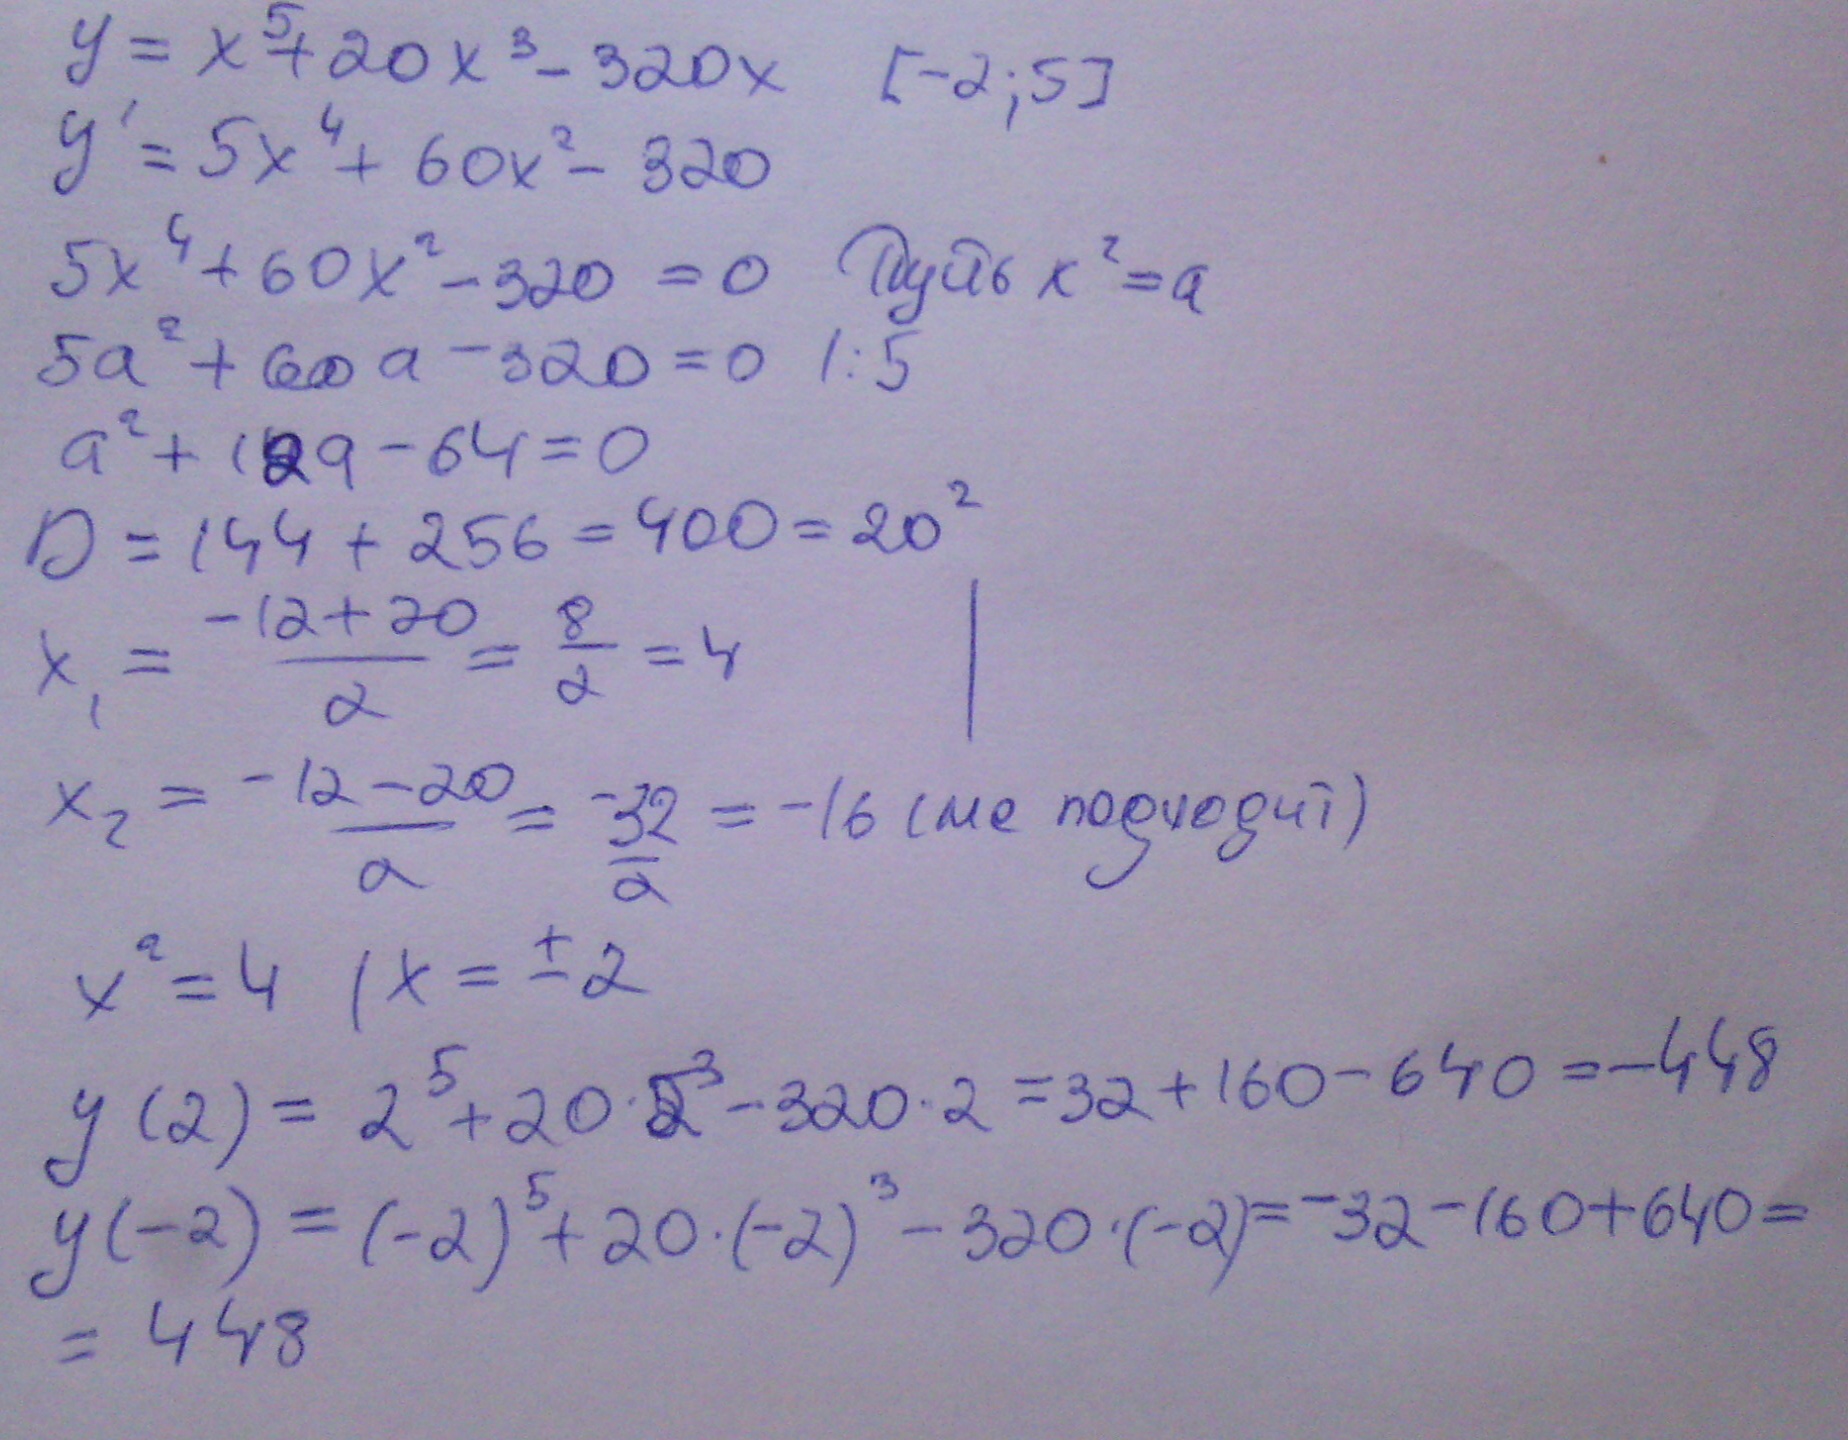 y = x⁵ + 20x³ - 320x [-2; 5]
y' = 5x⁴ + 60x² - 320
5x⁴ + 60x² - 320 = 0 Пусть x² = a
5a² + 60a - 320 = 0 | : 5
a² + 12a - 64 = 0
D = 144 + 256 = 400 = 20²
x₁ = (-12 + 20)/2 = 8/2 = 4
x₂ = (-12 - 20)/2 = -32/2 = -16 (не подходит)
x² = 4 | x = ±2
y(2) = 2⁵ + 20 · 2³ - 320 · 2 = 32 + 160 - 640 = -448
y(-2) = (-2)⁵ + 20 · (-2)³ - 320 · (-2) = -32 - 160 + 640 =
= 448